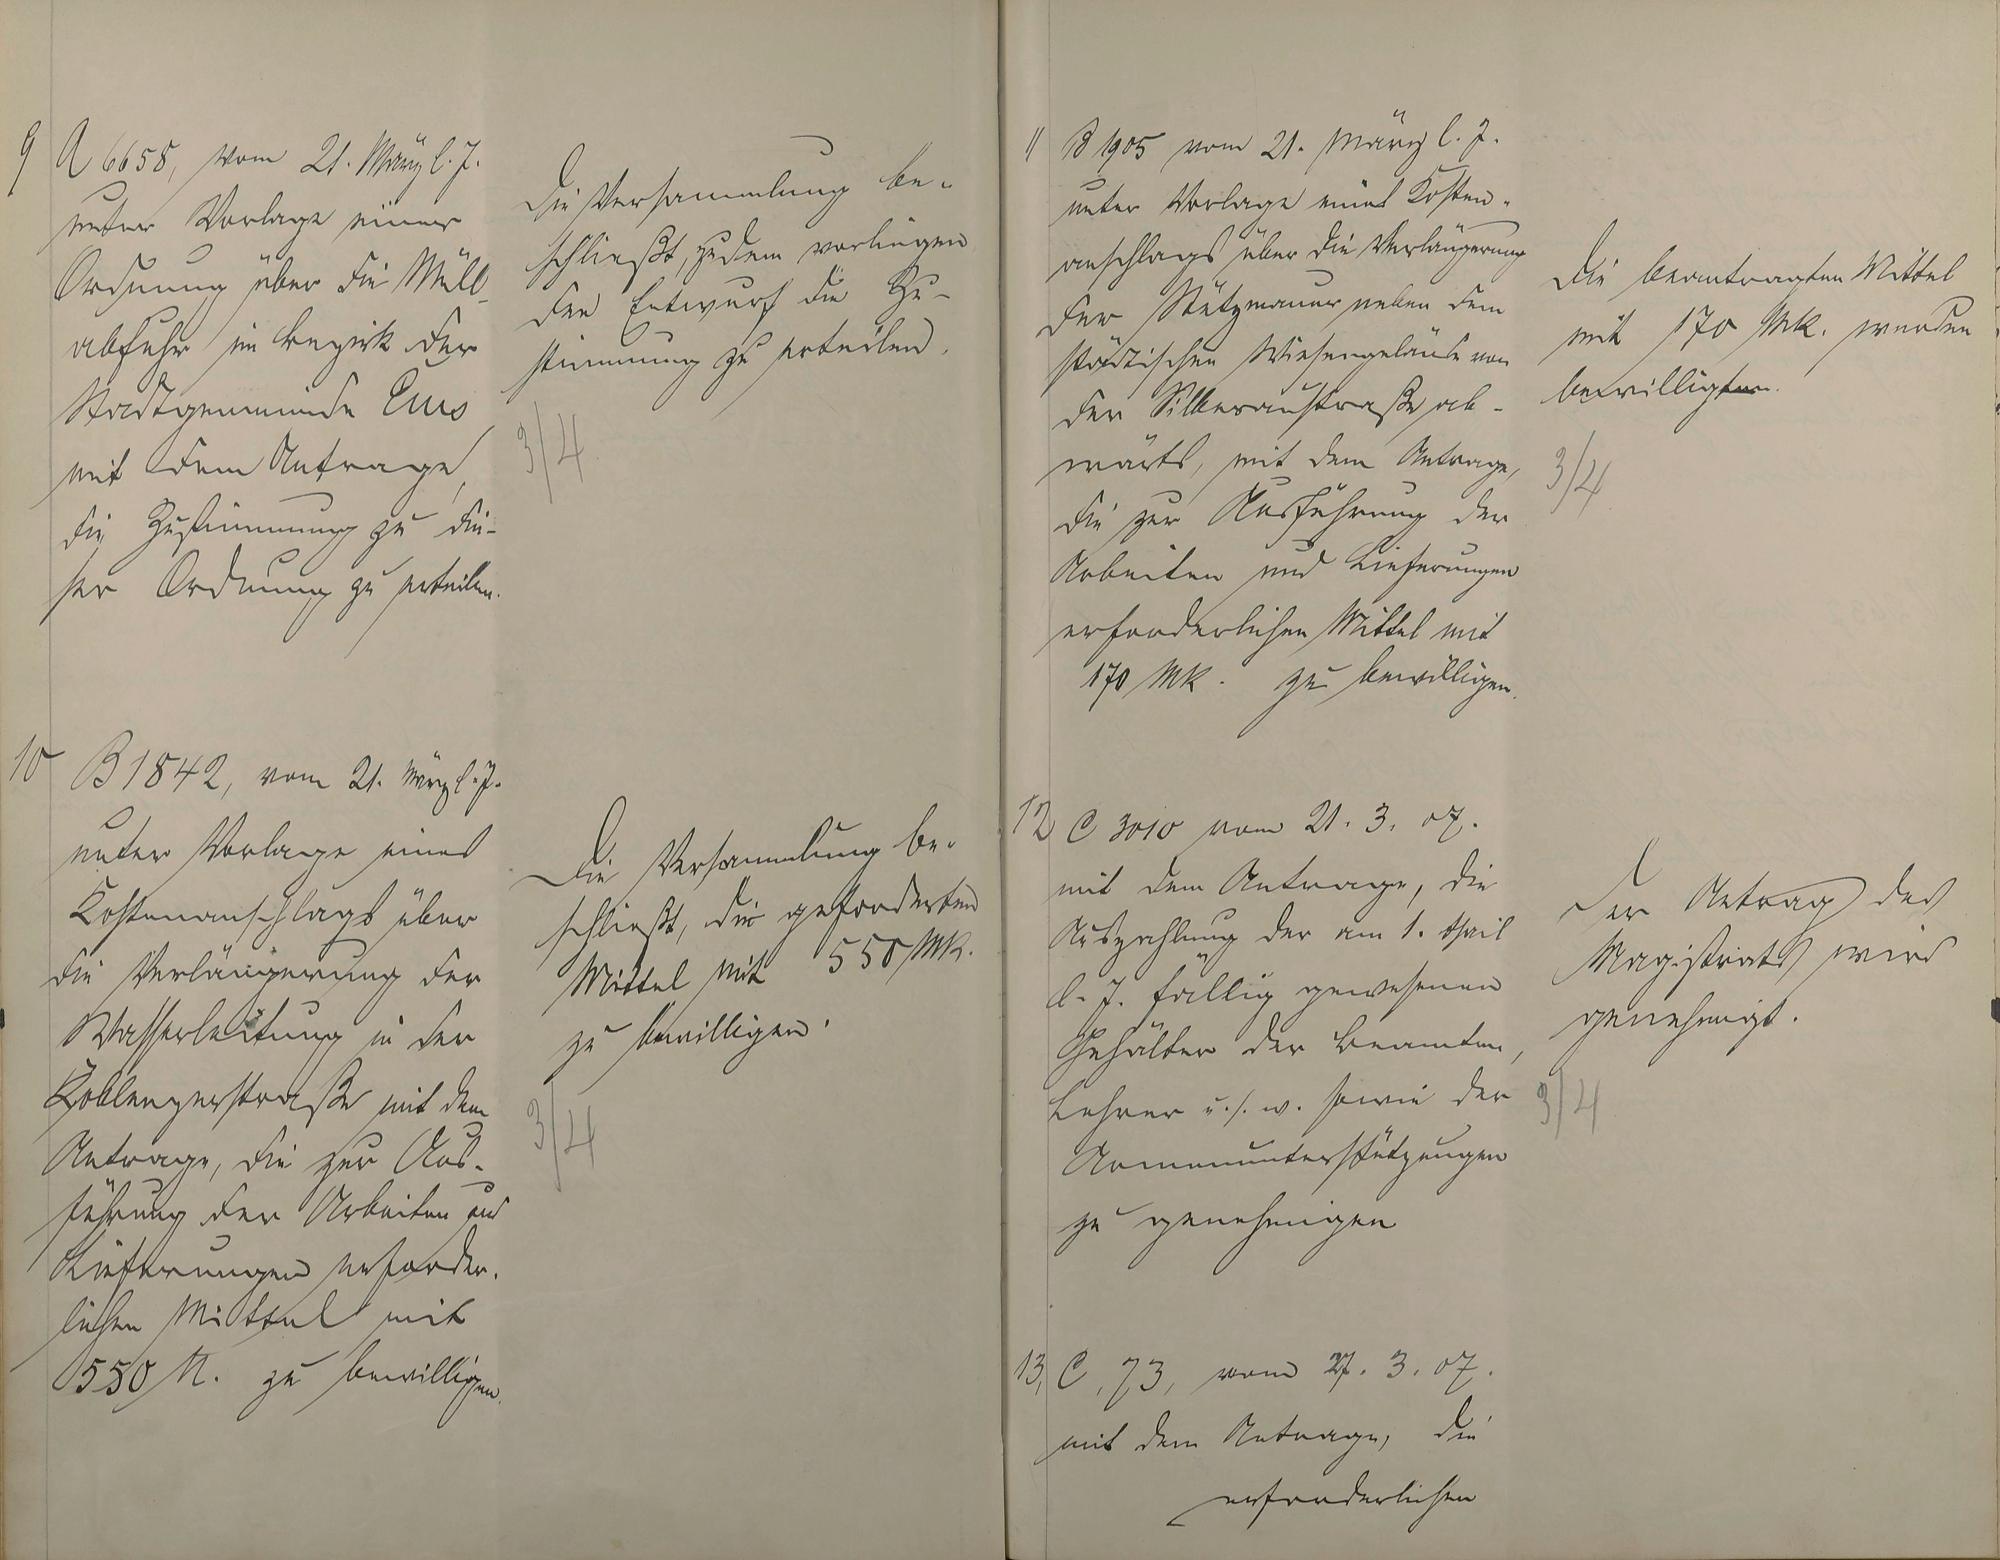 9 A 6658, vom 21. März l. J.
unter Vorlage einer
Ordnung über die Müll-
abfuhr im Bezirk der
Stadtgemeinde Ems
mit dem Antrage,
die Zustimmung zu die-
ser Ordnung zu erteilen.
Die Versammlung be-
schließt, zu dem vorliegen
den Entwurf die Zu-
stimmung zu erteilen.
3/4
10 B 1842, vom 21. März l. J.
unter Vorlage eines
Kostenanschlags über
die Verlängerung der
Wasserleitung in der
Koblenzerstraße mit dem
Antrage, die zur Aus-
führung der Arbeiten und
Lieferungen erforder-
lichen Mittel mit
550 M. zu bewilligen.
Die Versammlung be-
schließt, die geforderten
Mittel mit 550 Mk.
zu bewilligen.
3/4
11 B 1905 vom 21. März l. J.
unter Vorlage eines Kosten-
anschlags über die Verlängerung
der Stützmauer neben dem
städtischen Wiesengelände von
der Silberaustraße ab-
wärts, mit dem Antrage,
die zur Ausführung der
Arbeiten und Lieferungen
erforderlichen Mittel mit
170 Mk. zu bewilligen.
Die beantragten Mittel
mit 170 Mk. werden
bewilligt
3/4
12 C 3010 vom 21. 3. 07.
mit dem Antrage, die
Auszahlung der am 1. April
l. J. fällig gewesenen
Gehälter der Beamten,
Lehrer u. s. w. sowie der
Armenunterstützungen
zu genehmigen
Der Antrag des
Magistrats wird
genehmigt.
3/4
13, C, 73, vom 27. 3. 07.
mit dem Antrage, die
erforderlichen